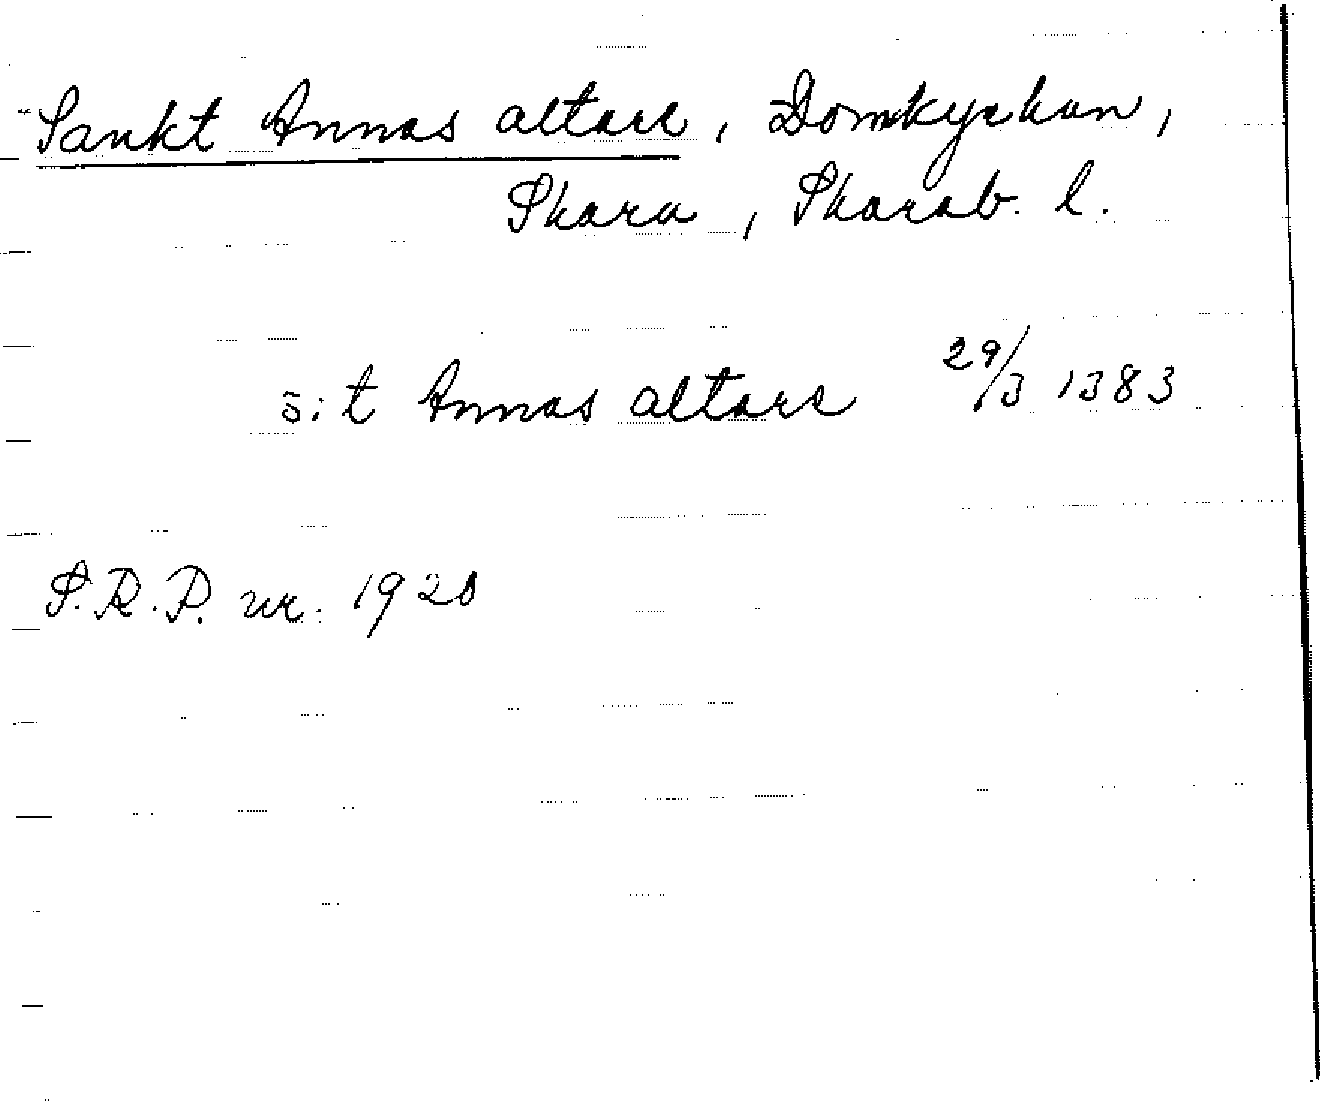 Sankt Annas altare, Domkyrkan,
Skara, Skarab. l.
s:t Annas altare 29/3 1383
S.R.P. nr. 1920